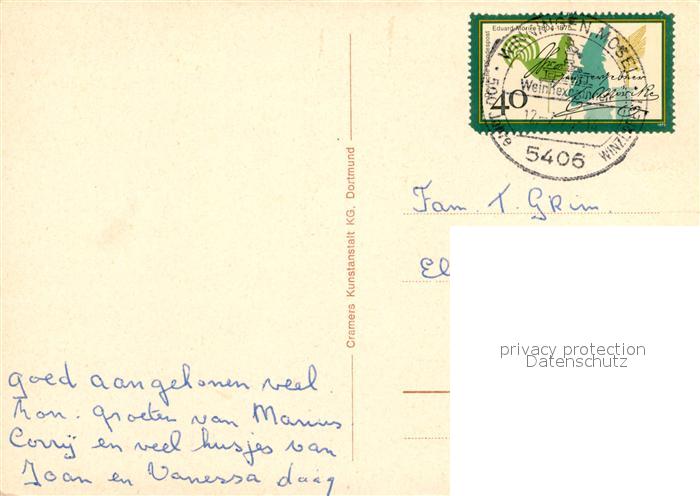 Eduard Mörike 1804-1875
Deutsche Bundespost
40
WINNINGEN MOSEL
5406
Cramers Kunstanstalt KG. Dortmund
Fam. T. Grim.
El
privacy protection
Datenschutz
goed aangekomen veel
groeten van Marius
Corrÿ en veel kusjes van
Joan en Vanessa daag